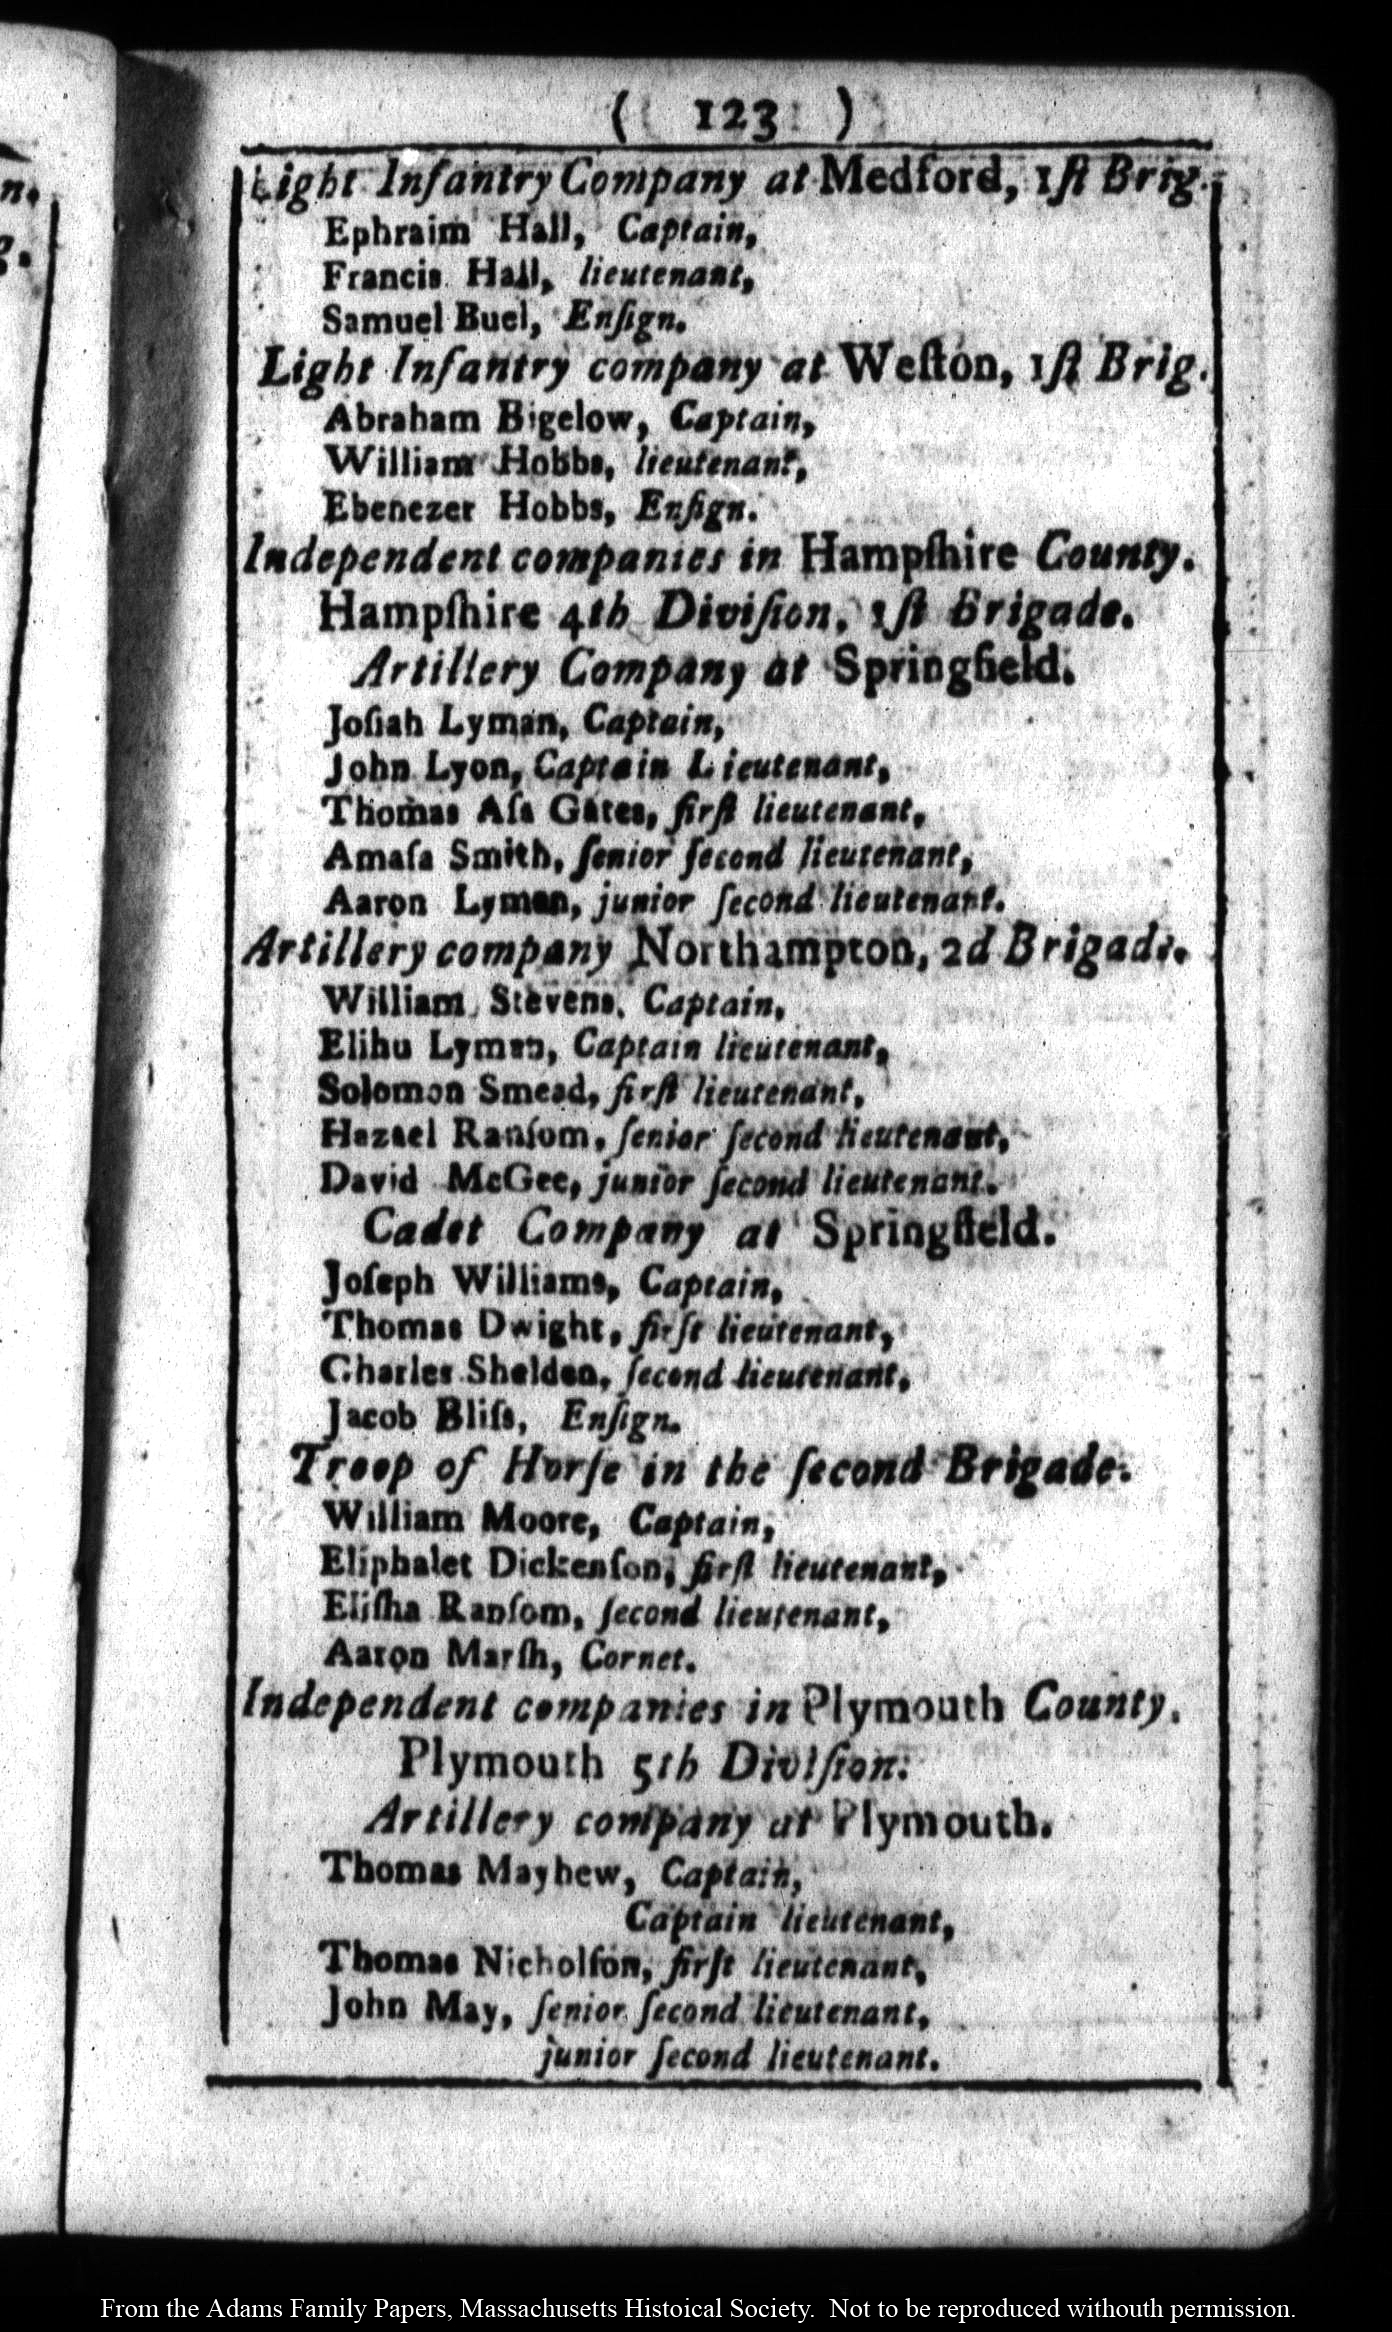 ( 123 )
Light Infantry Company at Medford, 1ſt Brig.
Ephraim Hall, Captain,
Francis Hall, lieutenant,
Samuel Buel, Enſign.
Light Infantry company at Weſton, 1ſt Brig.
Abraham Bigelow, Captain,
William Hobbs, lieutenant,
Ebenezer Hobbs, Enſign.
Independent companies in Hampſhire County.
Hampſhire 4th Diviſion, 1ſt Brigade.
Artillery Company at Springfield.
Joſiah Lyman, Captain,
John Lyon, Captain Lieutenant,
Thomas Aſa Gates, firſt lieutenant,
Amaſa Smith, ſenior ſecond lieutenant,
Aaron Lyman, junior ſecond lieutenant.
Artillery company Northampton, 2d Brigade.
William Stevens, Captain,
Elihu Lyman, Captain lieutenant,
Solomon Smead, firſt lieutenant,
Hazael Ranſom, ſenior ſecond lieutenant,
David McGee, junior ſecond lieutenant.
Cadet Company at Springfield.
Joſeph Williams, Captain,
Thomas Dwight, firſt lieutenant,
Charles Sheldon, ſecond lieutenant,
Jacob Bliſs, Enſign.
Troop of Horſe in the ſecond Brigade.
William Moore, Captain,
Eliphalet Dickenſon, firſt lieutenant,
Eliſha Ranſom, ſecond lieutenant,
Aaron Marſh, Cornet.
Independent companies in Plymouth County.
Plymouth 5th Diviſion.
Artillery company at Plymouth.
Thomas Mayhew, Captain,
Captain lieutenant,
Thomas Nicholſon, firſt lieutenant,
John May, ſenior ſecond lieutenant,
junior ſecond lieutenant.
From the Adams Family Papers, Massachusetts Histoical Society.  Not to be reproduced withouth permission.